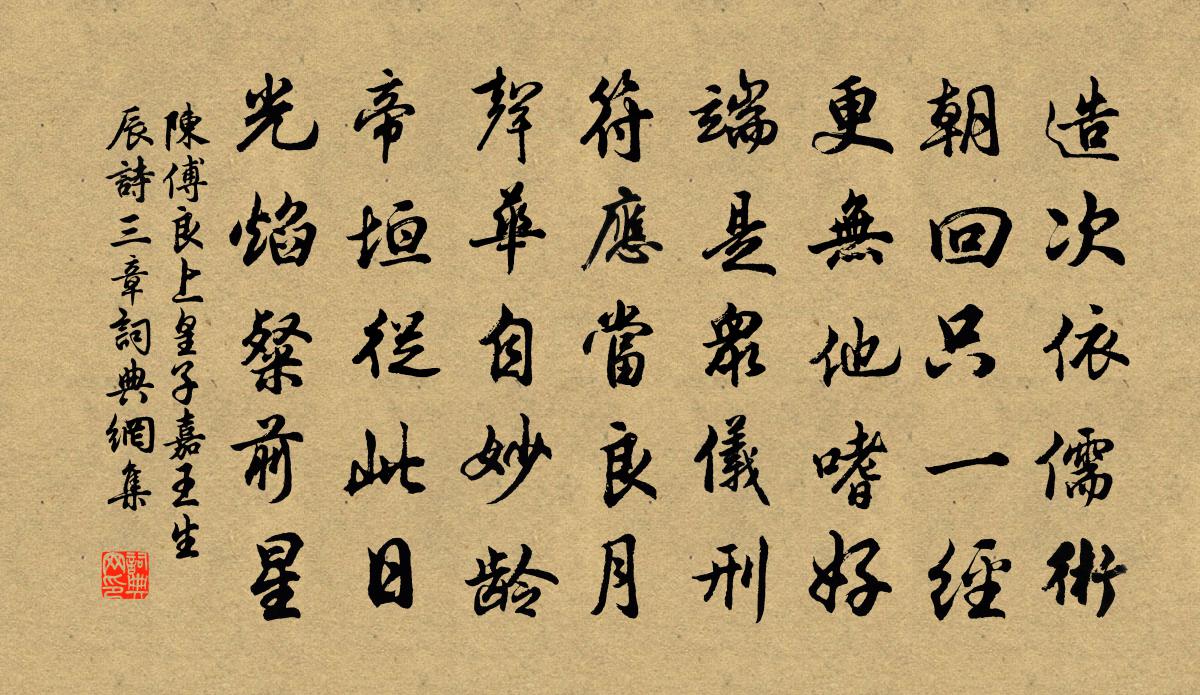 造次依儒術
朝回只一經
更無他嗜好
端是衆儀刑
符應當良月
聲華自妙齡
帝垣從此日
光焰粲前星
陳傅良上皇子嘉王生
辰詩三章詞典網集
詞典網印